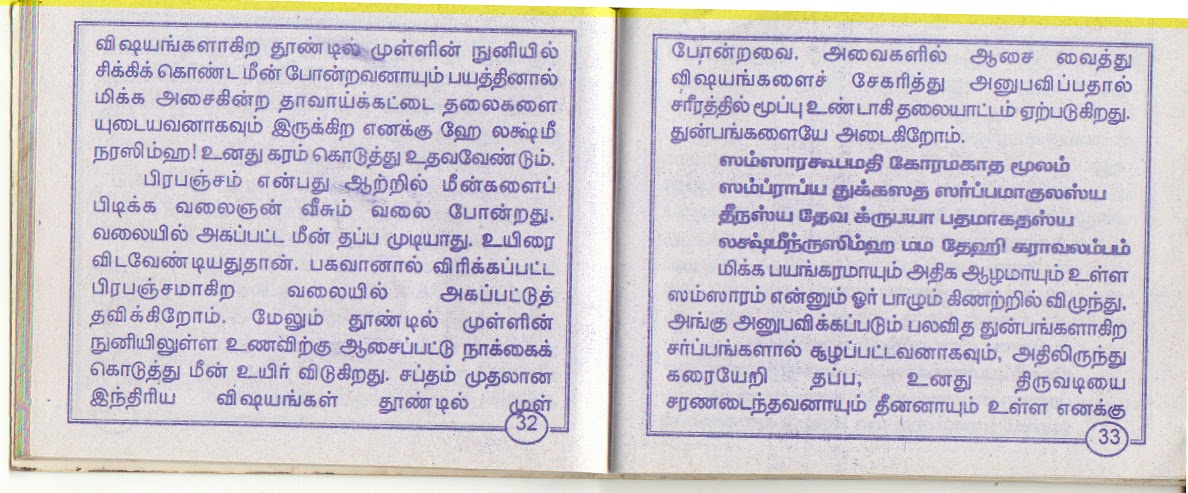 விஷயங்களாகிற தூண்டில் முள்ளின் நுனியில்
சிக்கிக் கொண்ட மீன் போன்றவனாயும் பயத்தினால்
மிக்க அசைகின்ற தாவாய்க்கட்டை தலைகளை
யுடையவனாகவும் இருக்கிற எனக்கு ஹே லக்ஷ்மீ
நரஸிம்ஹ! உனது கரம் கொடுத்து உதவவேண்டும்.
பிரபஞ்சம் என்பது ஆற்றில் மீன்களைப்
பிடிக்க வலைஞன் வீசும் வலை போன்றது.
வலையில் அகப்பட்ட மீன் தப்ப முடியாது. உயிரை
விடவேண்டியதுதான். பகவானால் விரிக்கப்பட்ட
பிரபஞ்சமாகிற வலையில் அகப்பட்டுத்
தவிக்கிறோம். மேலும் தூண்டில் முள்ளின்
நுனியிலுள்ள உணவிற்கு ஆசைப்பட்டு நாக்கைக்
கொடுத்து மீன் உயிர் விடுகிறது. சப்தம் முதலான
இந்திரிய விஷயங்கள் தூண்டில் முள்
32
போன்றவை. அவைகளில் ஆசை வைத்து
விஷயங்களைச் சேகரித்து அனுபவிப்பதால்
சரீரத்தில் மூப்பு உண்டாகி தலையாட்டம் ஏற்படுகிறது.
துன்பங்களையே அடைகிறோம்.
ஸம்ஸாரகூபமதி கோரமகாத மூலம்
ஸம்ப்ராப்ய துக்கஸத ஸர்ப்பமாகுலஸ்ய
தீநஸ்ய தேவ க்ருபயா பதமாகதஸ்ய
லக்ஷ்மீந்ருஸிம்ஹ மம தேஹி கராவலம்பம்
மிக்க பயங்கரமாயும் அதிக ஆழமாயும் உள்ள
ஸம்ஸாரம் என்னும் ஓர் பாழும் கிணற்றில் விழுந்து,
அங்கு அனுபவிக்கப்படும் பலவித துன்பங்களாகிற
சர்ப்பங்களால் சூழப்பட்டவனாகவும், அதிலிருந்து
கரையேறி தப்ப, உனது திருவடியை
சரணடைந்தவனாயும் தீனனாயும் உள்ள எனக்கு
33